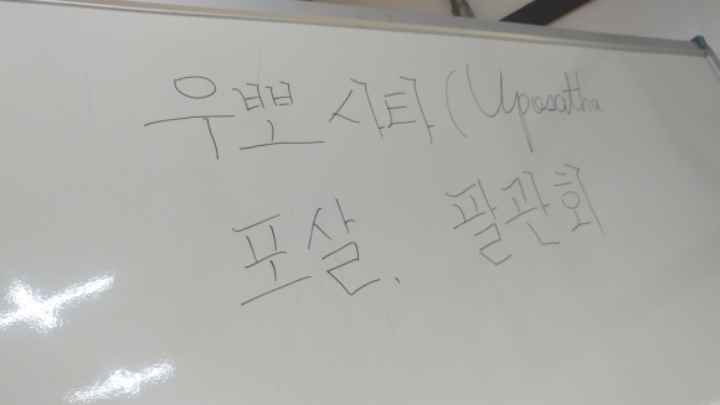 우뽀사타 (Uposatha
포살, 팔관회